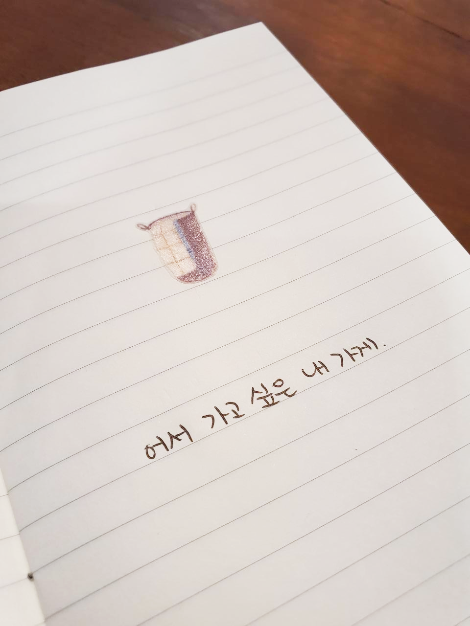 어서 가고 싶은 내 가게.